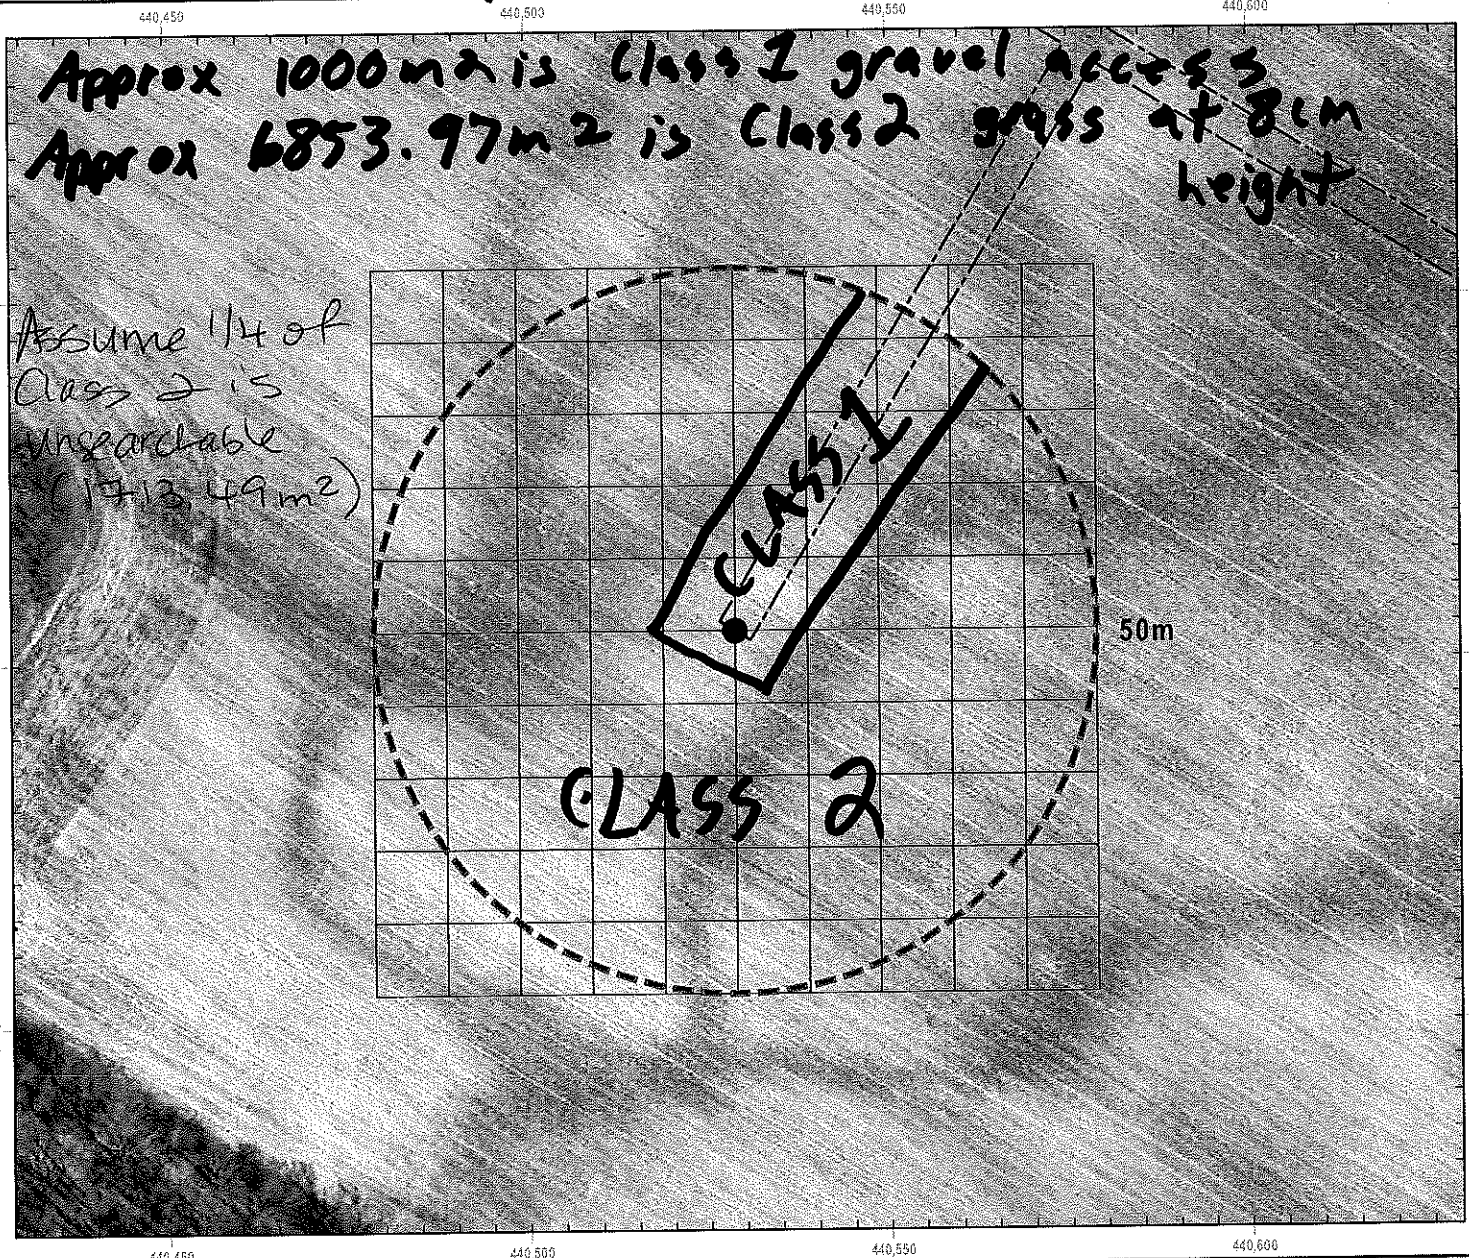 440,450 440,500 440,550 440,600
Approx 1000m2 is Class 1 gravel access
Approx 6853.97m2 is Class 2 grass at 8cm
height
Assume 1/4 of
Class 2 is
unsearchable
(1713.49m2)
CLASS 1
50m
CLASS 2
440,450 440,500 440,550 440,600